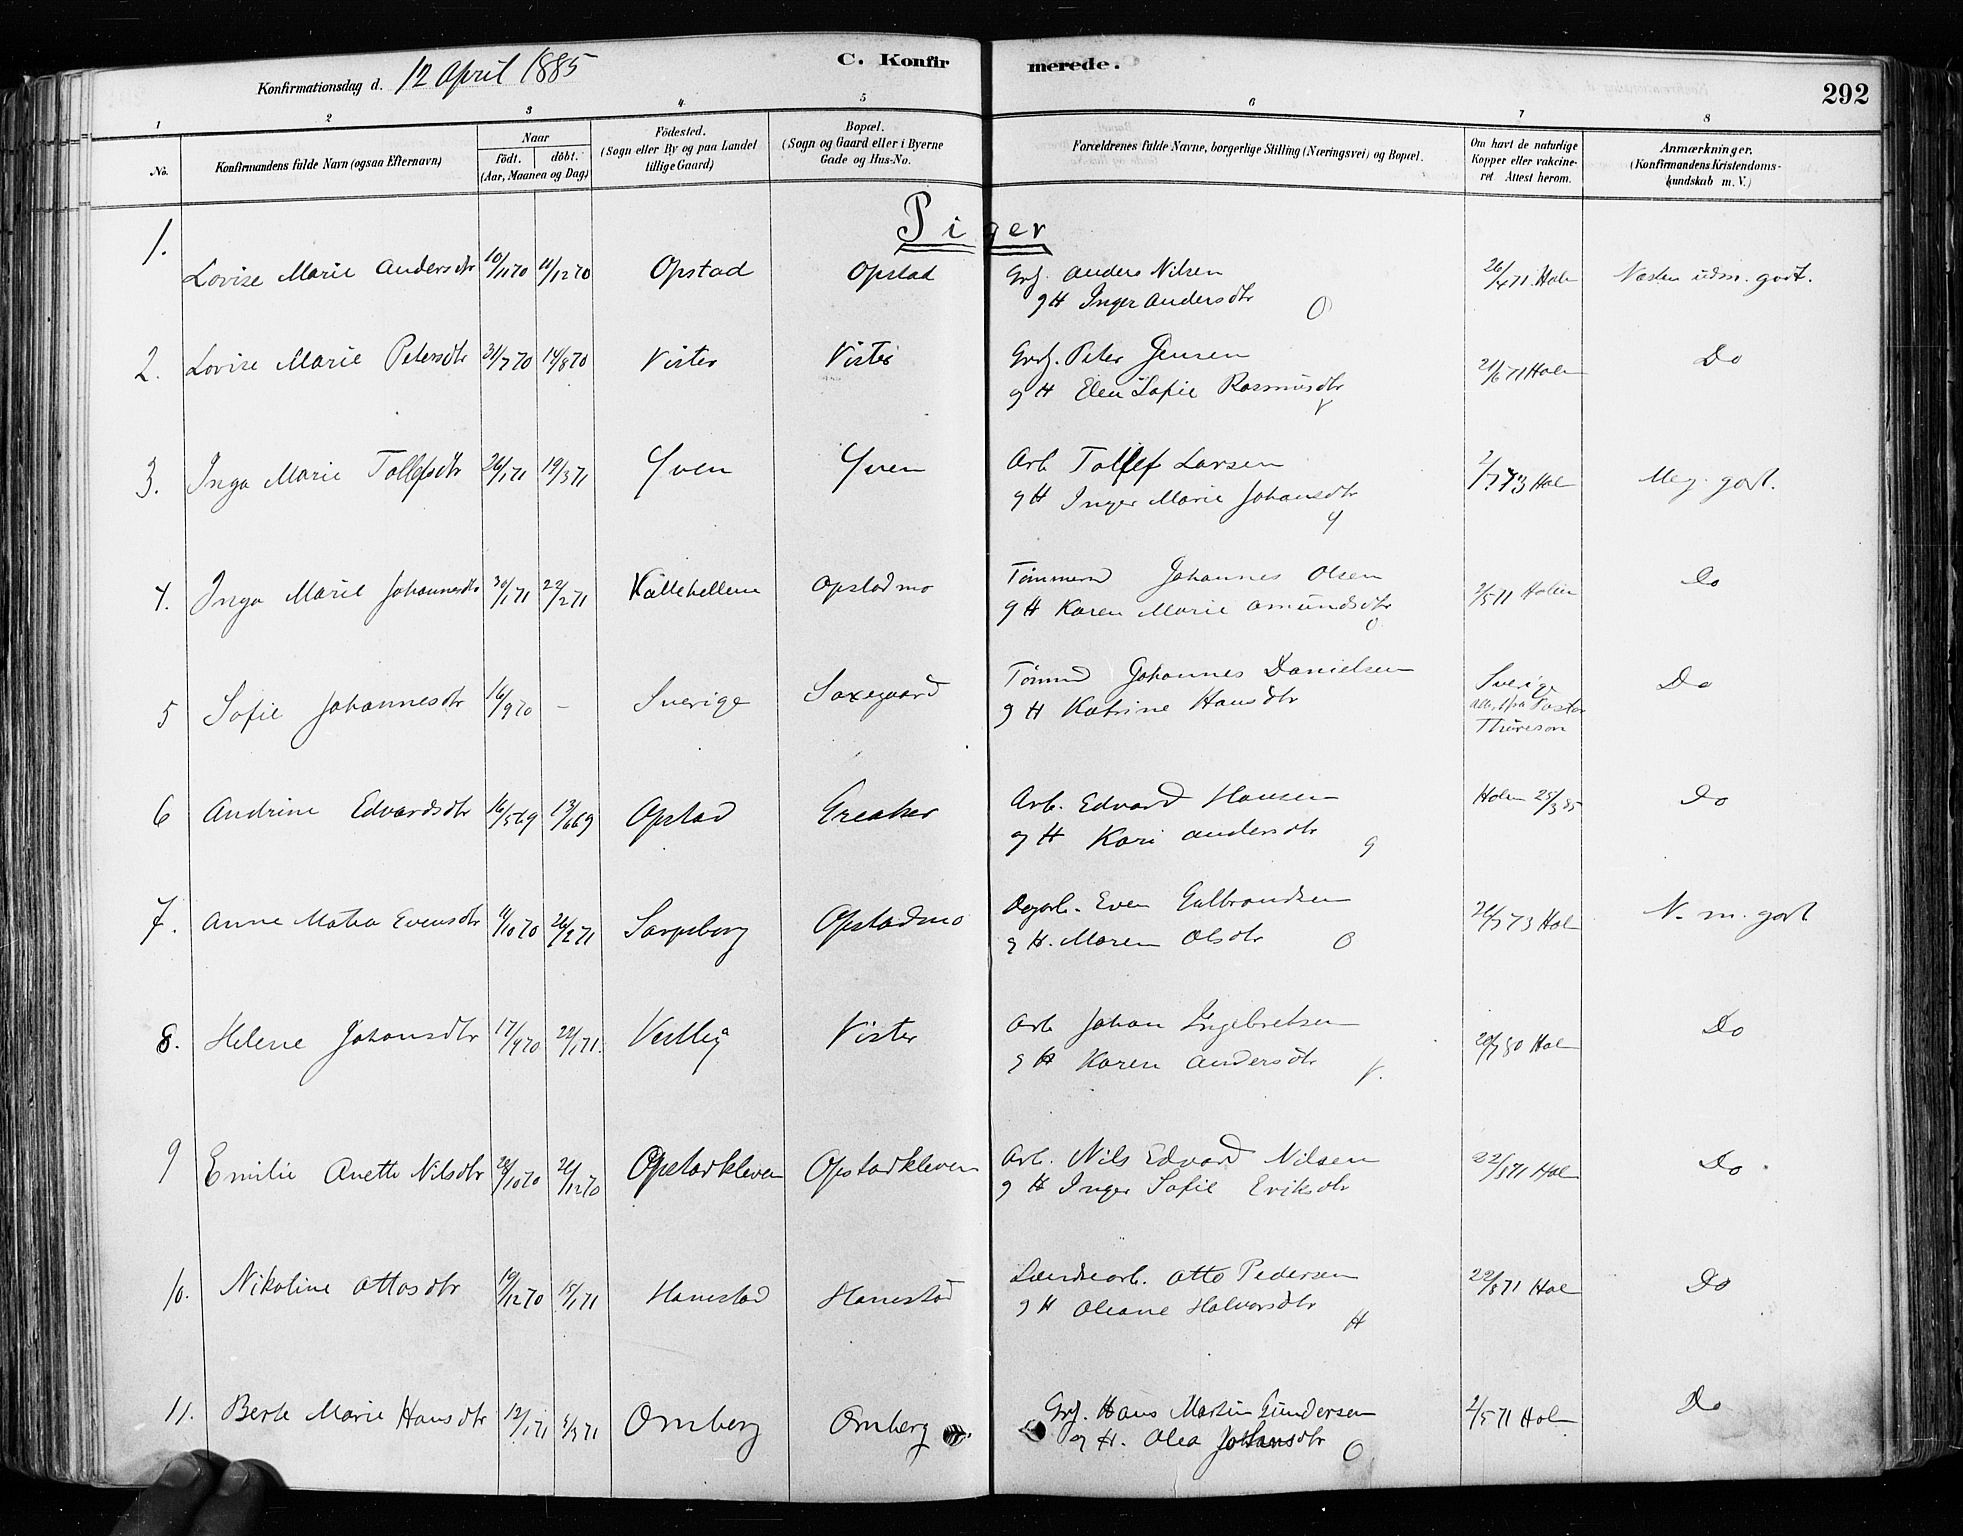 Konfirmationsdag d. 12 April 1885
C. Konfirmerede.
292
1 2 3 4 5 6 7 8
No.
Konfirmandens fulde Navn (ogsaa Efternavn)
Naar
födt. döbt.
(Aar, Maaned og Dag)
Födested.
(Sogn eller By og paa Landet
tillige Gaard)
Bopæl.
(Sogn og Gaard eller i Byerne
Gade og Hus-No.
Forældrenes fulde Navne, borgerlige Stilling (Næringsvei) og Bopæl.
Om havt de naturlige
Kopper eller vakcine-
ret. Attest herom.
Anmærkninger.
(Konfirmandens Kristendoms-
kundskab m. V.)
Piger
1. Lovise Marie Andersdtr 10/11 70 11/12 70 Opstad Opstad Grf. Anders Nilsen 26/4 71 Holm Næsten udm. godt.
g H Inger Andersdtr O
2. Lovise Marie Petersdtr 31/7 70 14/8 70 Vister Vister Grf. Peter Jensen 21/6 71 Holm Do
g H Elen Sofie Rasmusdtr V
3. Inga Marie Tollefsdtr 26/1 71 19/3 71 Yven Yven Arb Tollef Larsen 2/7 73 Hol Meg. godt.
g H Inger Marie Johansdtr Y
4. Inga Marie Johannesdtr 30/1 71 22/2 71 Kallehellene Opstadmo Tømmerm Johannes Olsen 2/5 71 Holm Do
g H Karen Marie Amundsdtr O
5 Sofie Johannesdtr 16/9 70 - Sverige Saxegaard Tømm Johannes Danielsen Sverige Do
g H Katrine Hansdtr Att. fra Pastor
Thureson
6 Andrine Edvardsdtr 16/5 69 13/6 69 Opstad Greaker Arb. Edvard Hansen Holm 25/3 85 Do
g H Kari Andersdtr g
7. Anne Matea Evensdtr 9/10 70 26/2 71 Sarpsborg Opstadmo Dagarb. Even Gulbrandsen 26/7 73 Hol N. m. godt
g H. Maren Olsdtr O
8. Helene Johansdtr 17/9 70 22/1 71. Vestby Vister Arb Johan Ingebretsen 20/7 80 Hol Do
g H Karen Andersdtr V.
9 Emilie Anette Nilsdtr 28/10 70 26/12 70 Opstadkleven Opstadkleven Arb. Nils Edvard Nilsen 22/8 71 Hol Do.
g H Inger Sofie Eriksdtr
10. Nikoline Ottosdtr 19/12 70 15/1 71 Hanestad Hanestad Landearb. Otto Pedersen 22/8 71 Hol Do
g H Oleane Halvorsdtr H
11. Berte Marie Hansdtr 12/1 71 5/3 71 Ornberg Ornberg Grf. Hans Martin Gundersen 2/5 71 Holm Do
g H. Olea Johansdtr O